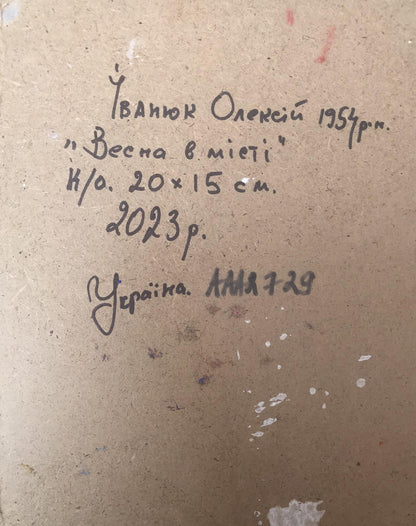 Іванюк Олексій 1954р.н.
„Весна в місті"
К/о. 20×15 см.
2023р.
Україна. АААR729